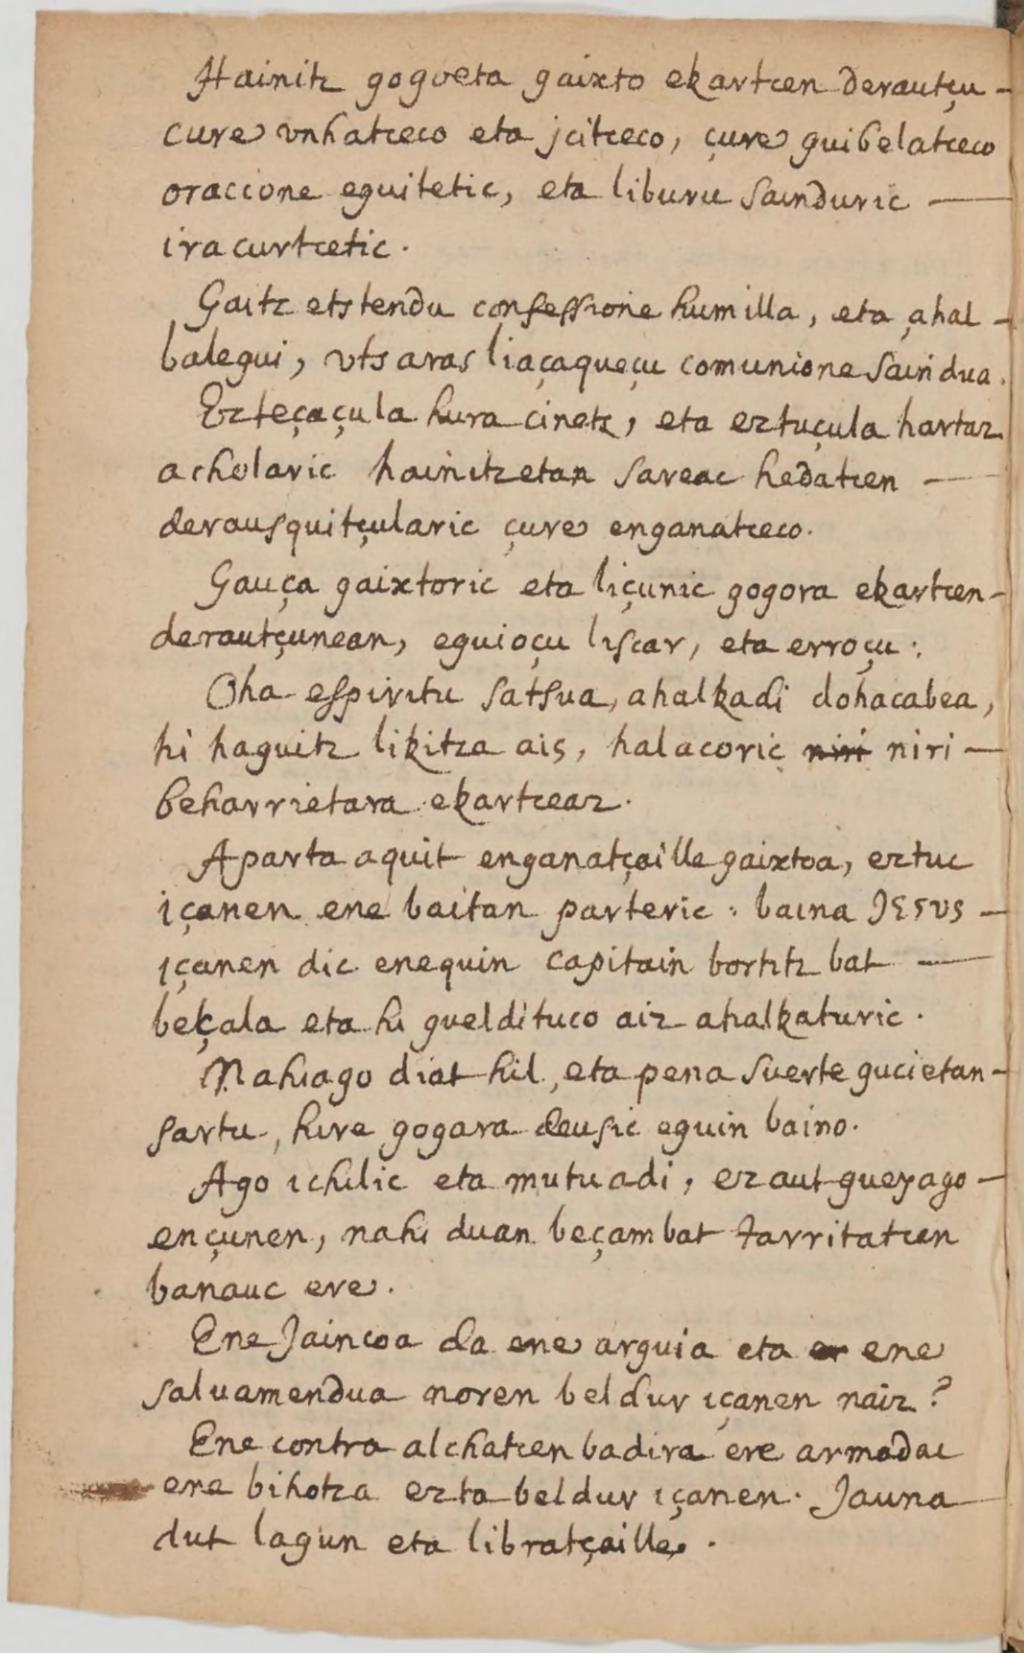 Hainitz gogoeta gaixto ekartcen derautçu -
cure vnhatceco eta jcitceco, çure guibelatceco
oraccione eguitetic, eta liburu sainduric —
iracurtcetic.
Gaitz etstendu confessione humilla, eta ahal -
balegui, vts aras liaçaqueçu comunione saindua.
Ezteçaçula hura cinetz, eta eztuçula hartaz
acholaric hainitzetan sareac hedatcen —
derausquitçularic çure enganatceco.
Gauça gaixtoric eta liçunic gogora ekartcen -
derautçunean, eguioçu liscar, eta erroçu:
Oha espiritu satsua, ahalkadi dohacabea,
hi haguitz likitza aiz, halacoric ~~niri~~ niri —
beharrietara ekartceaz.
Aparta aquit enganatçaille gaixtoa, eztuc
içanen ene baitan parteric: baina JESVS —
içanen dic enequin capitain bortitz bat —
beçala eta hi gueldituco aiz ahalkaturic.
Nahiago diat hil, eta pena suerte gucietan -
sartu, hire gogara deusic eguin baino.
Ago ichilic eta mutu adi, ezaut gueyago —
ençunen, nahi duan beçambat tarritatcen
banauc ere.
Ene Jaincoa da ene arguia eta ~~er~~ ene
saluamendua noren beldur içanen naiz?
Ene contra alchatcen badira ere armadac
ene bihotza ezta beldur içanen. Jauna —
dut lagun eta libratçaille.